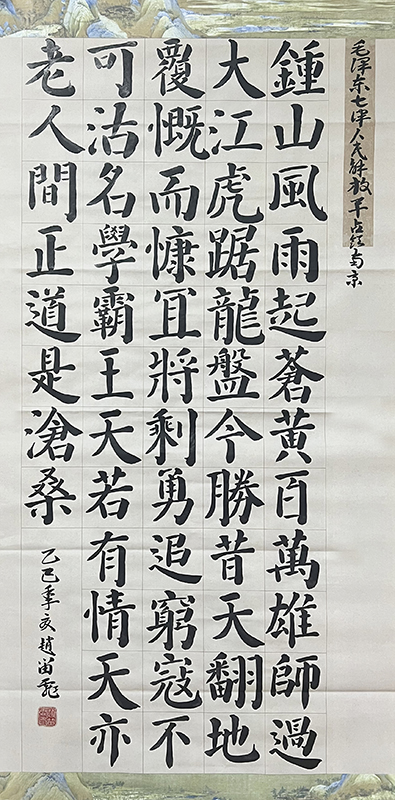 毛澤东七律人民解放军占领南京
鍾山風雨起蒼黄百萬雄師過
大江虎踞龍盤今勝昔天翻地
覆慨而慷冝將剩勇追窮寇不
可沽名學霸王天若有情天亦
老人間正道是滄桑
乙巳年 趙